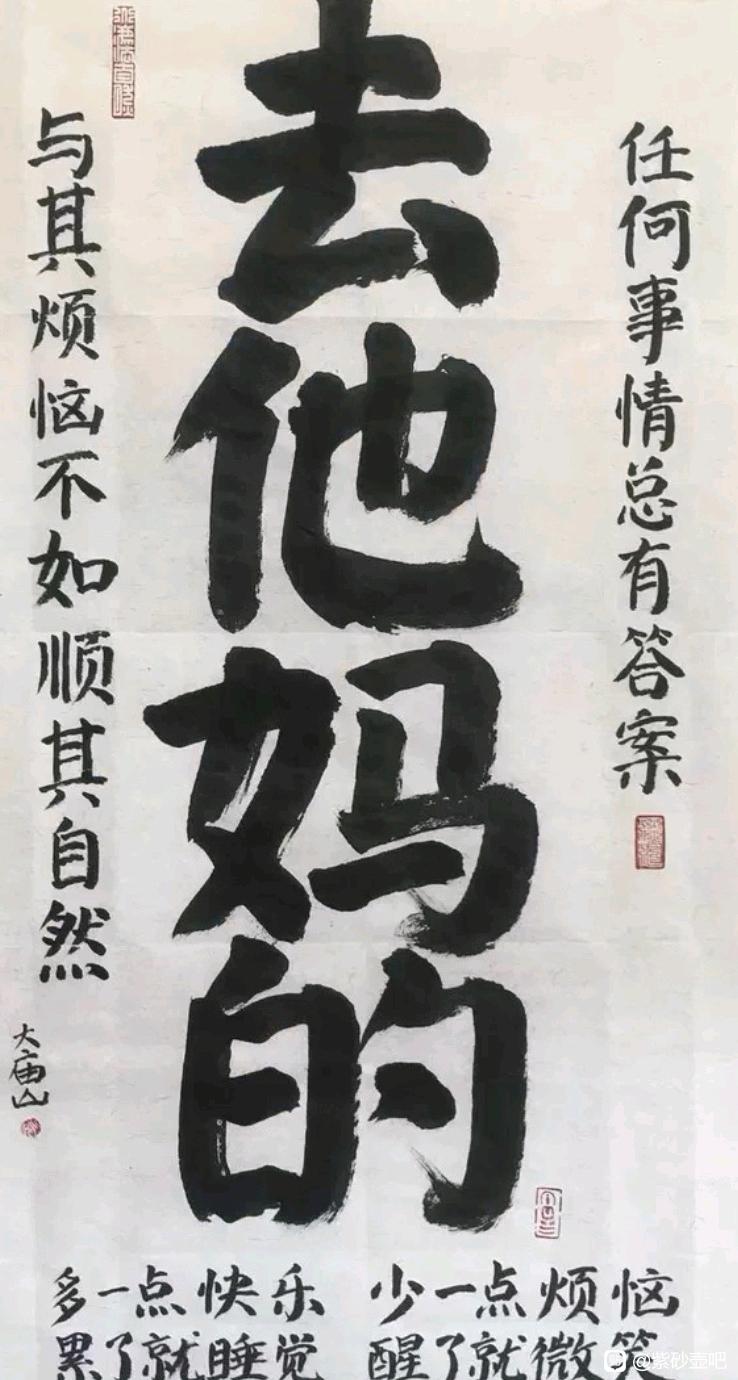 任何事情总有答案
去他妈的
与其烦恼不如顺其自然
大庙山
多一点快乐 少一点烦恼
累了就睡觉 醒了就微笑
@紫砂壶吧